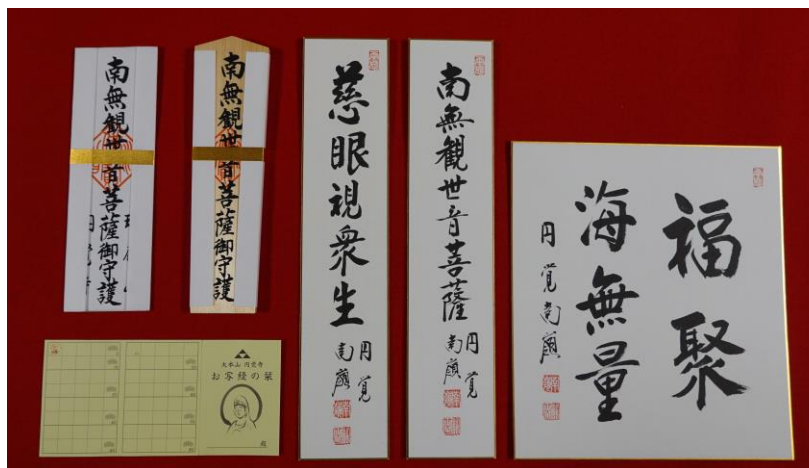 南無観世音菩薩御守護
円覚寺
南無観世音菩薩御守護
慈眼視衆生
円覚
南嶺
南無観世音菩薩
円覚
南嶺
福聚
海無量
円覚南嶺
大本山 円覚寺
お写経の栞